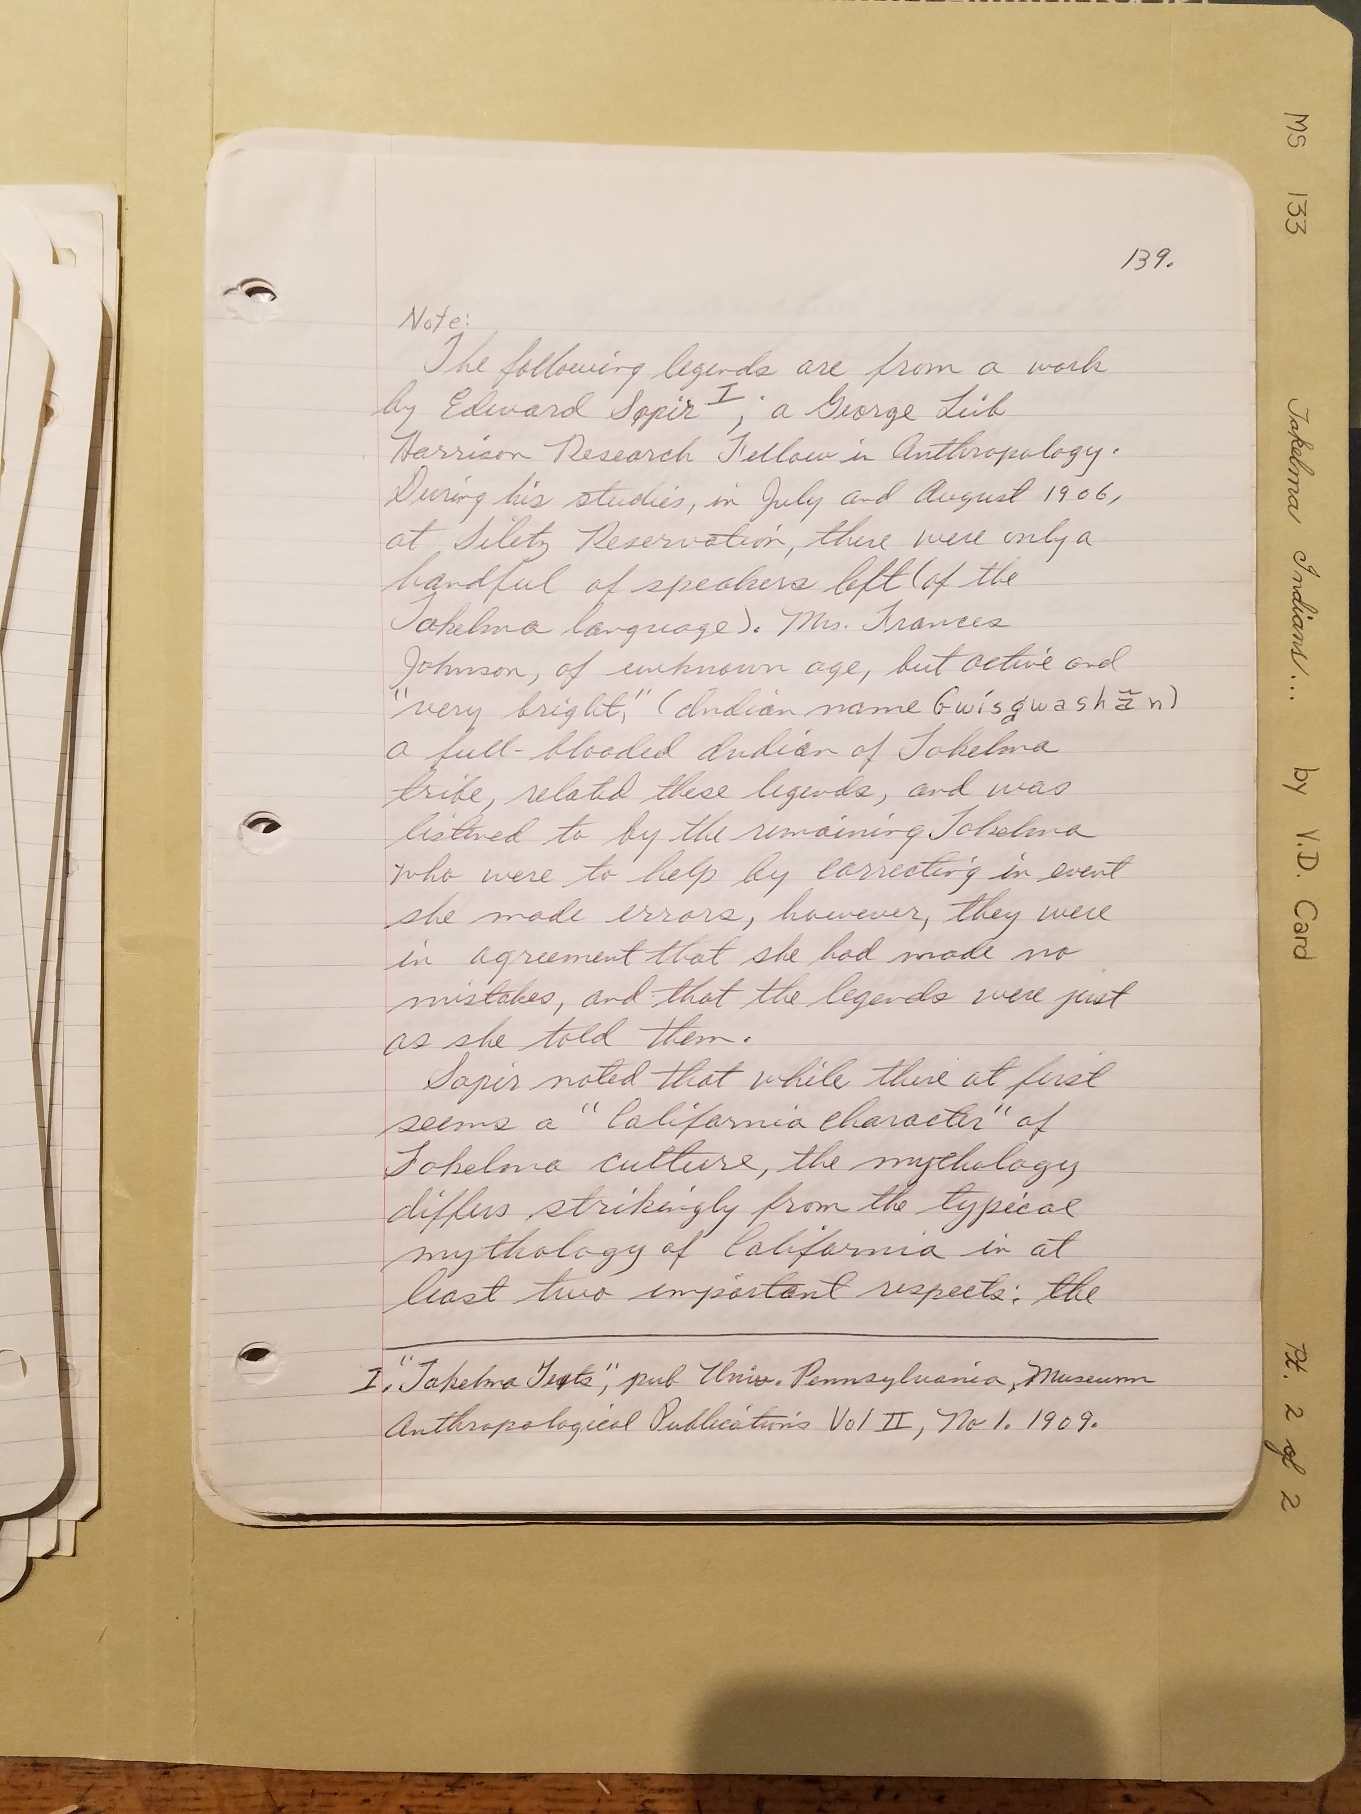 139.
Note:
The following legends are from a work
by Edward Sapir I, a George Leib
Harrison Research Fellow in Anthropology.
During his studies, in July and August 1906,
at Siletz Reservation, there were only a
handful of speakers left (of the
Takelma language). Mrs. Frances
Johnson, of unknown age, but active and
"very bright," (Indian name
a full-blooded Indian of Takelma
tribe, related these legends, and was
listened to by the remaining Takelma
who were to help by correcting in event
she made errors, however, they were
in agreement that she had made no
mistakes, and that the legends were just
as she told them.
Sapir noted that while there at first
seems a "California character" of
Takelma culture, the mythology
differs strikingly from the typical
mythology of California in at
least two important respects: the
I. "Takelma Texts", pub Univ. Pennsylvania, Museum
Anthropological Publications Vol II, No 1. 1909.
MS 133 Takelma Indians... by V.D. Card Pt. 2 of 2